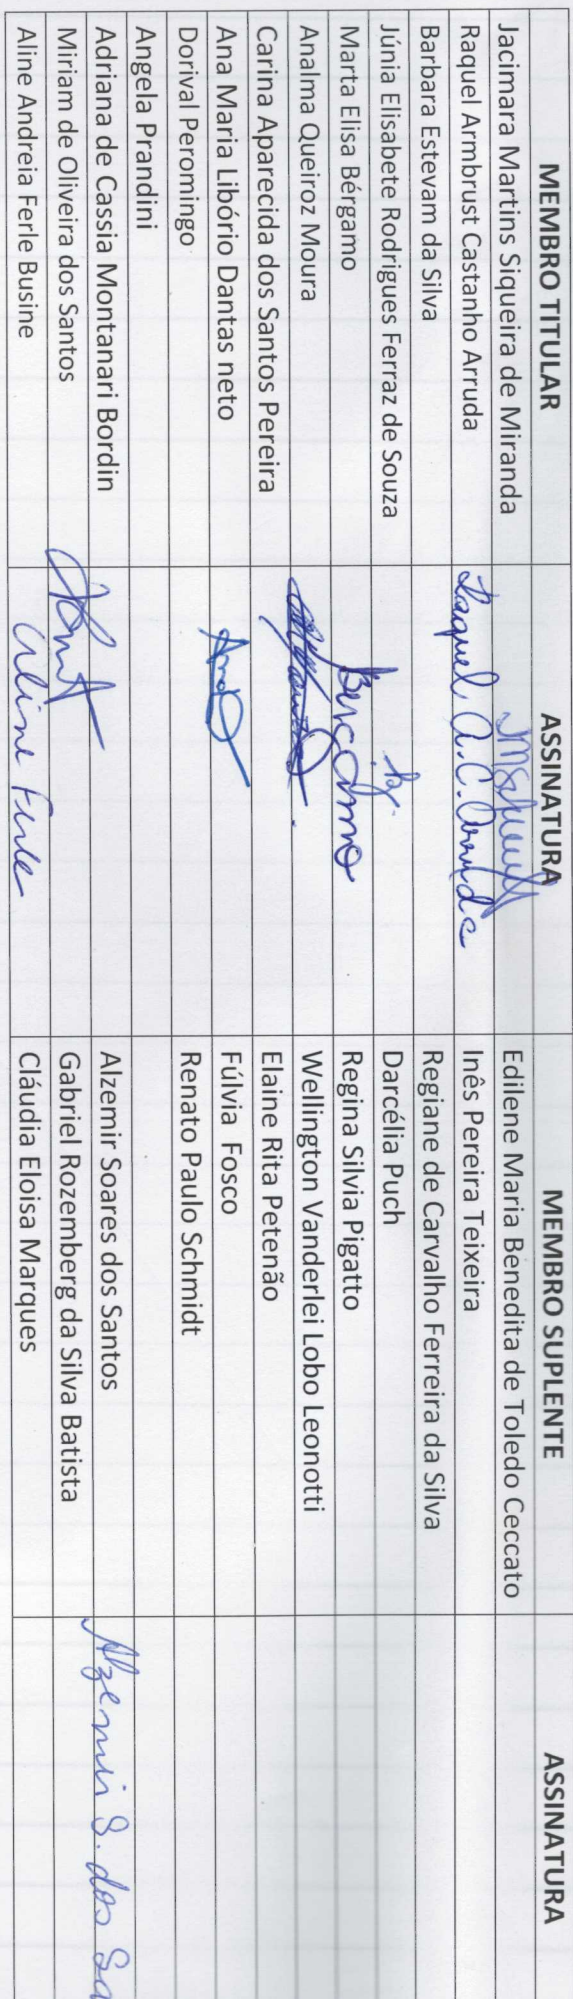 MEMBRO TITULAR ASSINATURA MEMBRO SUPLENTE ASSINATURA
Jacimara Martins Siqueira de Miranda Edilene Maria Benedita de Toledo Ceccato
Raquel Armbrust Castanho Arruda Raquel A. C. Arruda Inês Pereira Teixeira
Barbara Estevam da Silva Regiane de Carvalho Ferreira da Silva
Júnia Elisabete Rodrigues Ferraz de Souza Darcélia Puch
Marta Elisa Bérgamo Bergamo Regina Silvia Pigatto
Analma Queiroz Moura Wellington Vanderlei Lobo Leonotti
Carina Aparecida dos Santos Pereira Elaine Rita Petenão
Ana Maria Libório Dantas neto Fúlvia Fosco
Dorival Peromingo Renato Paulo Schmidt
Angela Prandini
Adriana de Cassia Montanari Bordin Alzemir Soares dos Santos Alzemir S. dos Sa
Miriam de Oliveira dos Santos Gabriel Rozemberg da Silva Batista
Aline Andreia Ferle Busine Aline Ferle Cláudia Eloisa Marques